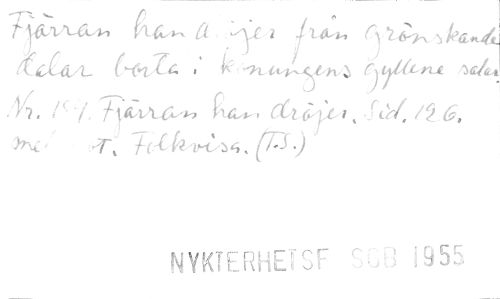 Fjärran han dröjer från grönskande
dalar borta i konungens gyllene salar.
Nr. Fjärran han dröjer. Sid. 126.
Folkvisa. (T.S.)
NYKTERHETSF SGB 1955